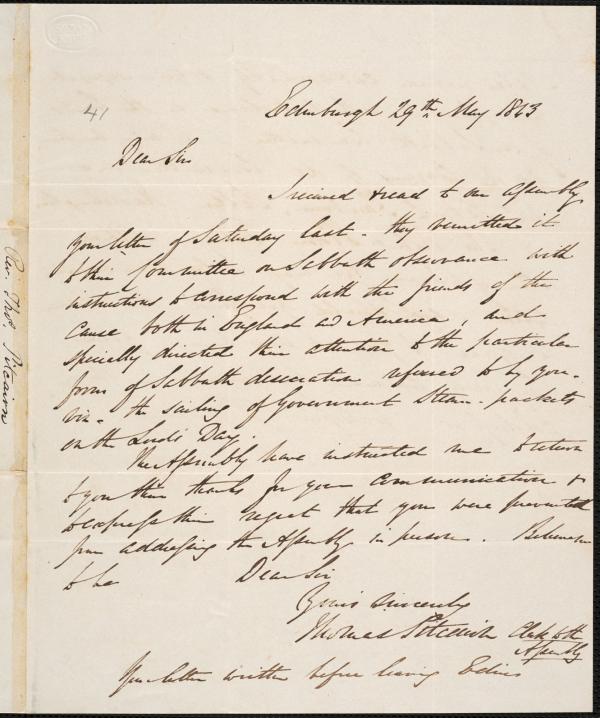 41
Edinburgh 29th May 1863
Dear Sir
I received & read to our Assembly
your letter of Saturday last. They remitted it
to their Committee on Sabbath observance with
instructions to correspond with the friends of the
cause both in England and America, and
specially directed their attention to the particular
form of Sabbath desecration referred to by you.
viz. the sailing of Government Steam-packets
on the Lord's Day.
The Assembly have instructed me to return
to you their thanks for your communication &
to express their regret that you were prevented
from addressing the Assembly in person. Believe me
to be Dear Sir
Yours sincerely
Thomas Pitcairn Clerk to the
Assembly
Your letter written before leaving Edinr
Rev. Thos. Pitcairn